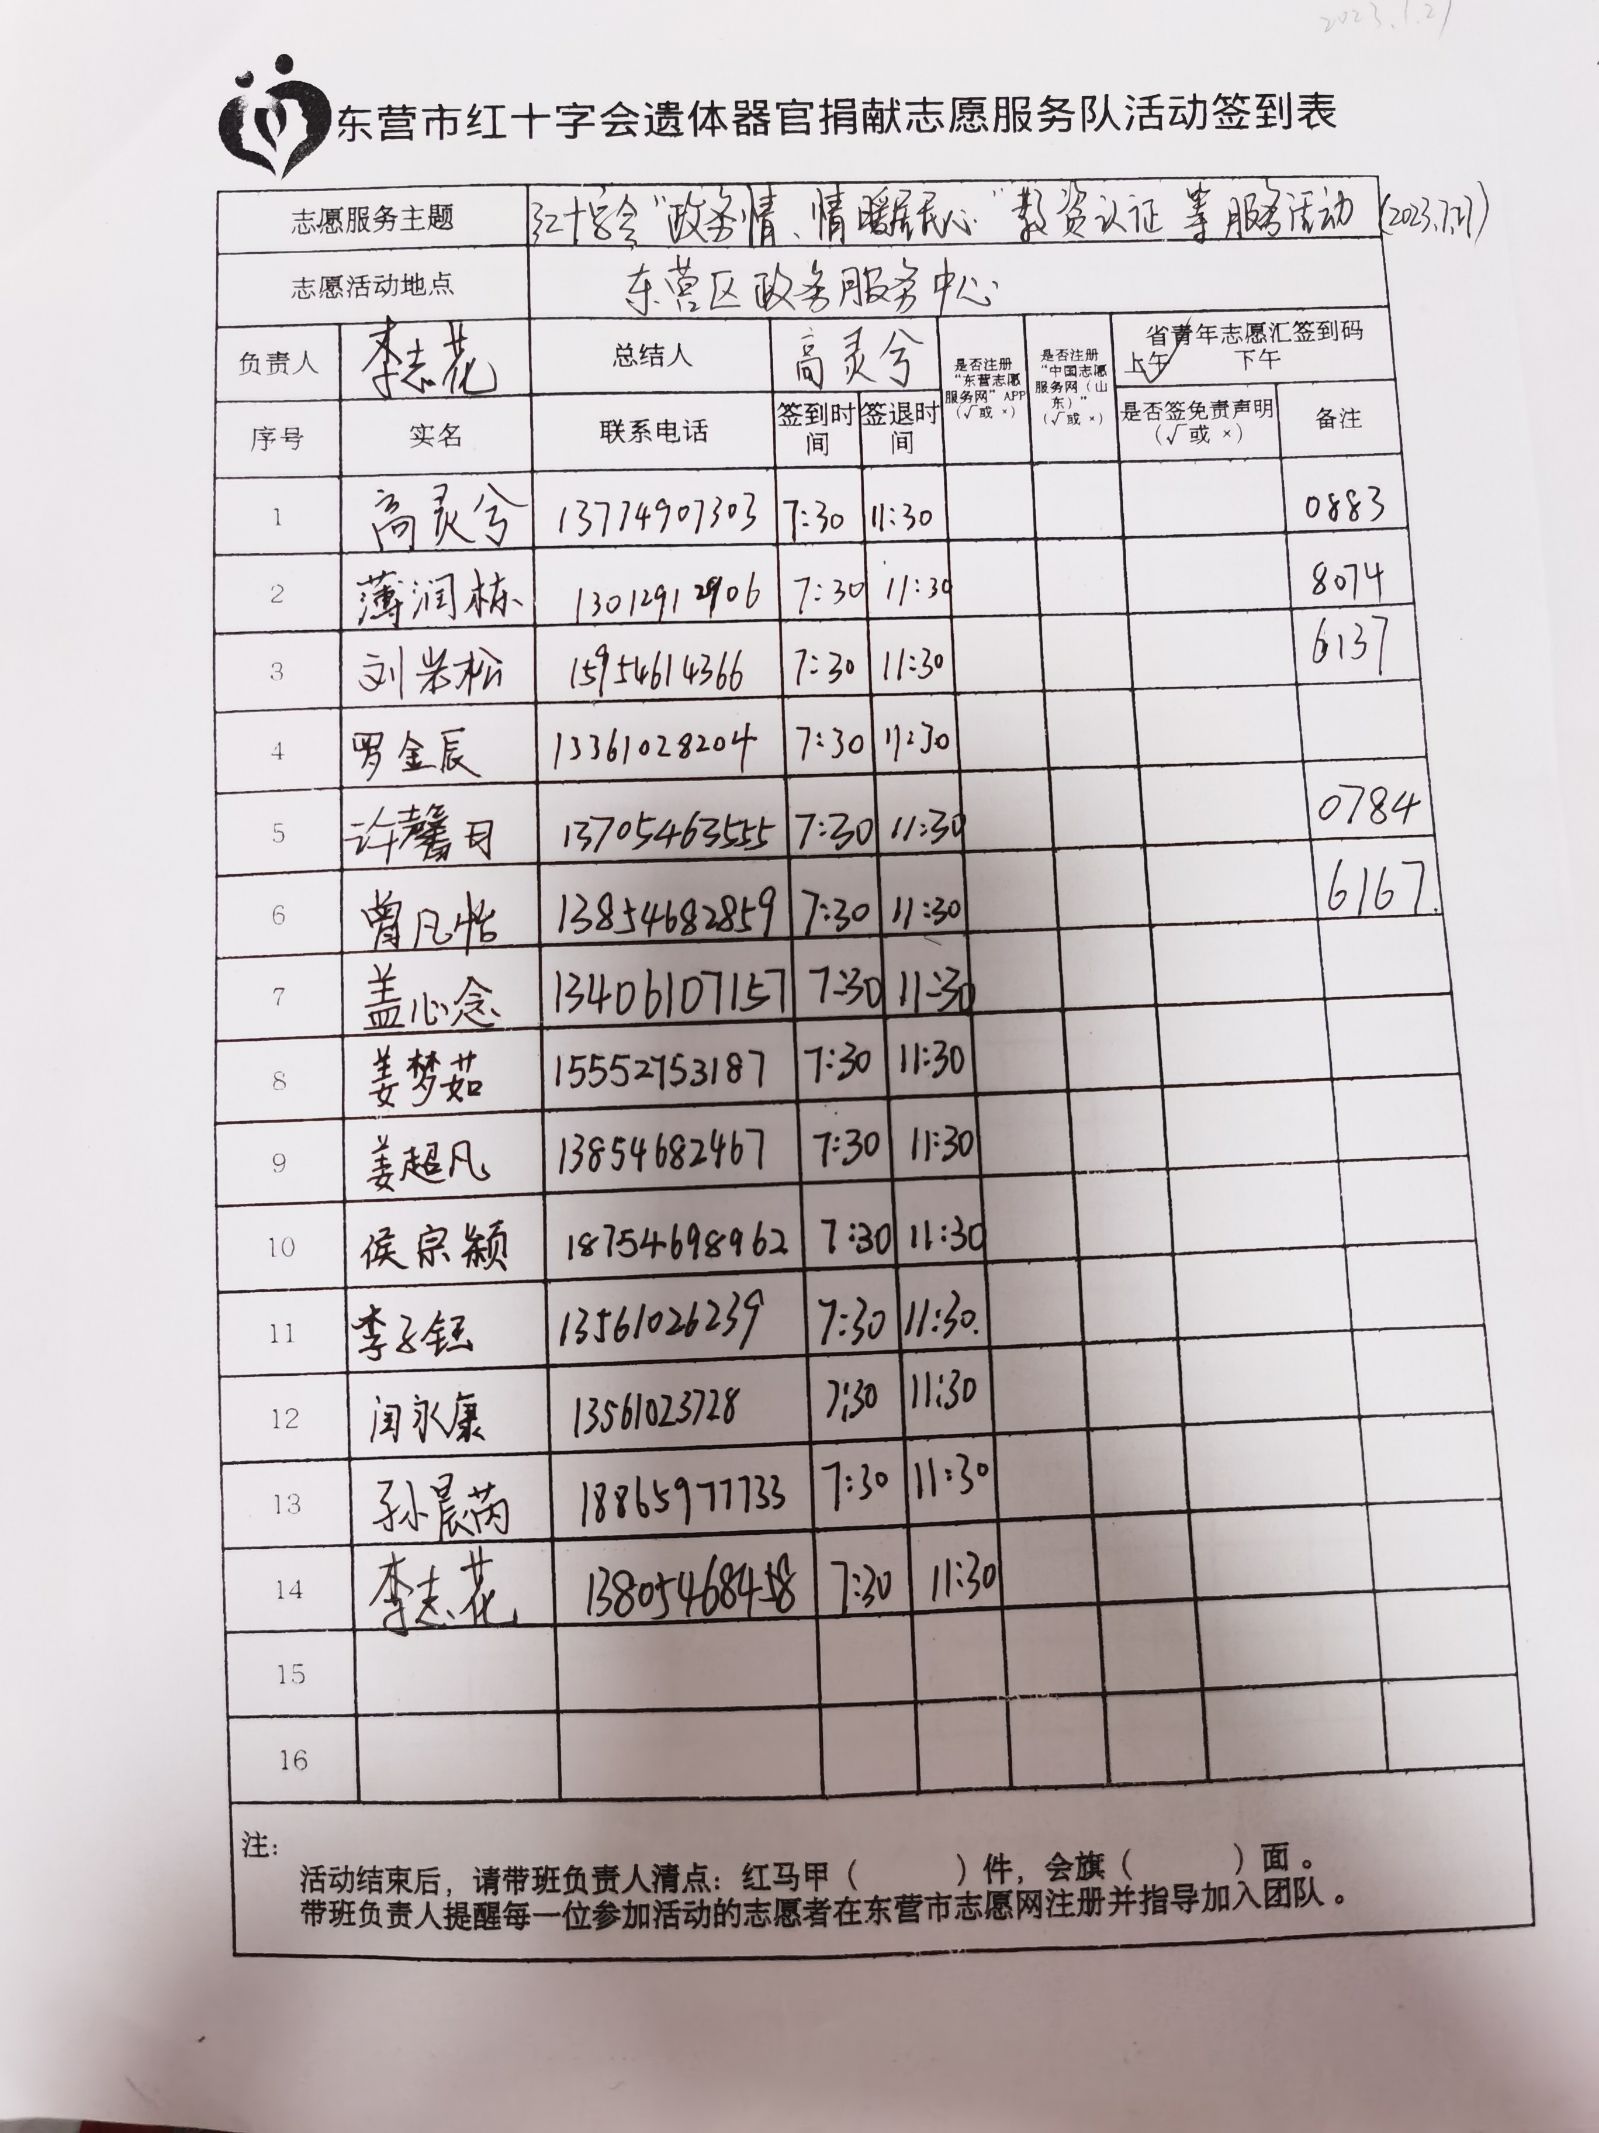 东营市红十字会遗体器官捐献志愿服务队活动签到表
志愿服务主题 红十字会“政务情、情暖居民心”教资认证等服务活动 (2023.7.21)
志愿活动地点 东营区政务服务中心
负责人 李志花 总结人 高灵兮 是否注册“东营志愿服务网”APP（√或×） 是否注册“中国志愿服务网（山东）”（√或×） 省青年志愿汇签到码 上午√ 下午
序号 实名 联系电话 签到时间 签退时间 是否签免责声明（√或×） 备注
1 高灵兮 13774907303 7:30 11:30 0883
2 薄润栋 13012912906 7:30 11:30 8074
3 刘岩松 15954614366 7:30 11:30 6137
4 罗金辰 13361028204 7:30 11:30
5 许馨日 13705463555 7:30 11:30 0784
6 曾凡怡 13854682859 7:30 11:30 6167.
7 盖心念 13406107157 7:30 11:30
8 姜梦茹 15552753187 7:30 11:30
9 姜超凡 13854682467 7:30 11:30
10 侯宗颖 18754698962 7:30 11:30
11 李子钰 13561026239 7:30 11:30.
12 闫永康 13561023728 7:30 11:30
13 孙晨芮 18865977733 7:30 11:30
14 李志花 13805468458 7:30 11:30
15
16
注：
活动结束后，请带班负责人清点：红马甲（ ）件，会旗（ ）面。
带班负责人提醒每一位参加活动的志愿者在东营市志愿网注册并指导加入团队。